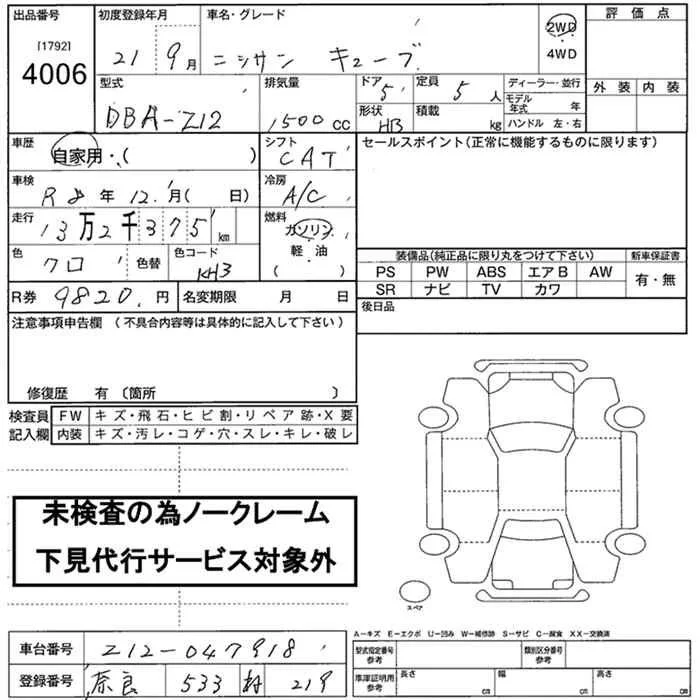 出品番号 初度登録年月 車名・グレード 評価点
[1792]
4006
21 9月 ニッサン キューブ 2WD
4WD
型式 排気量 ドア 定員 ディーラー・並行 外装 内装
DBA-Z12 1500cc 5 5人 モデル年式 年
形状 HB 積載 kg ハンドル 左・右
車歴 自家用・( ) シフト CAT セールスポイント(正常に機能するものに限ります)
車検 R8年12月( 日) 冷房 A/C
走行 13万2千375km 燃料 ガソリン
軽油
( )
色 クロ 色替 色コード KH3
装備品(純正品に限り丸をつけて下さい) 新車保証書
PS PW ABS エアB AW 有・無
SR ナビ TV カワ
R券 9820円 名変期限 月 日 後日品
注意事項申告欄 (不具合内容等は具体的に記入して下さい)
修復歴 有 〔箇所 〕
検査員 FW キズ・飛石・ヒビ割・リペア跡・X要
記入欄 内装 キズ・汚レ・コゲ・穴・スレ・キレ・破レ
未検査の為ノークレーム
下見代行サービス対象外
スペア
A-キズ E-エクボ U-凹み W-補修跡 S-サビ C-腐食 XX-交換済
車台番号 Z12-047918 型式指定番号 参考 類別区分番号 参考
登録番号 奈良 533 219 車庫証明用 参考 長さ cm 幅 cm 高さ cm